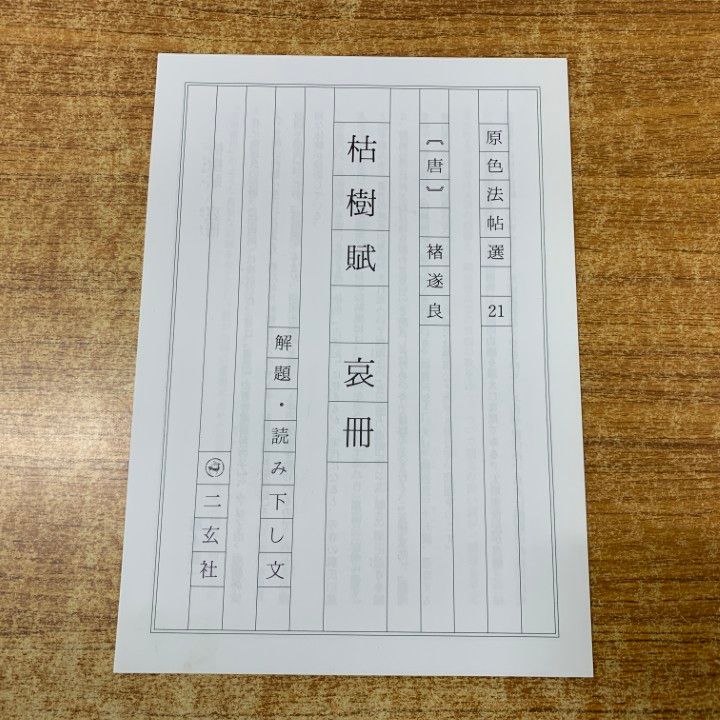 原色法帖選 21
〔唐〕 褚遂良
枯樹賦 哀冊
解題・読み下し文
二玄社